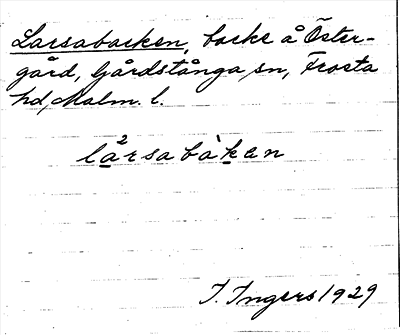 Larsabacken, backe å Öster-
gård, Gårdstånga sn, Frosta
hd, Malm. l.
la²rsabàkan
I. Ingers 1929